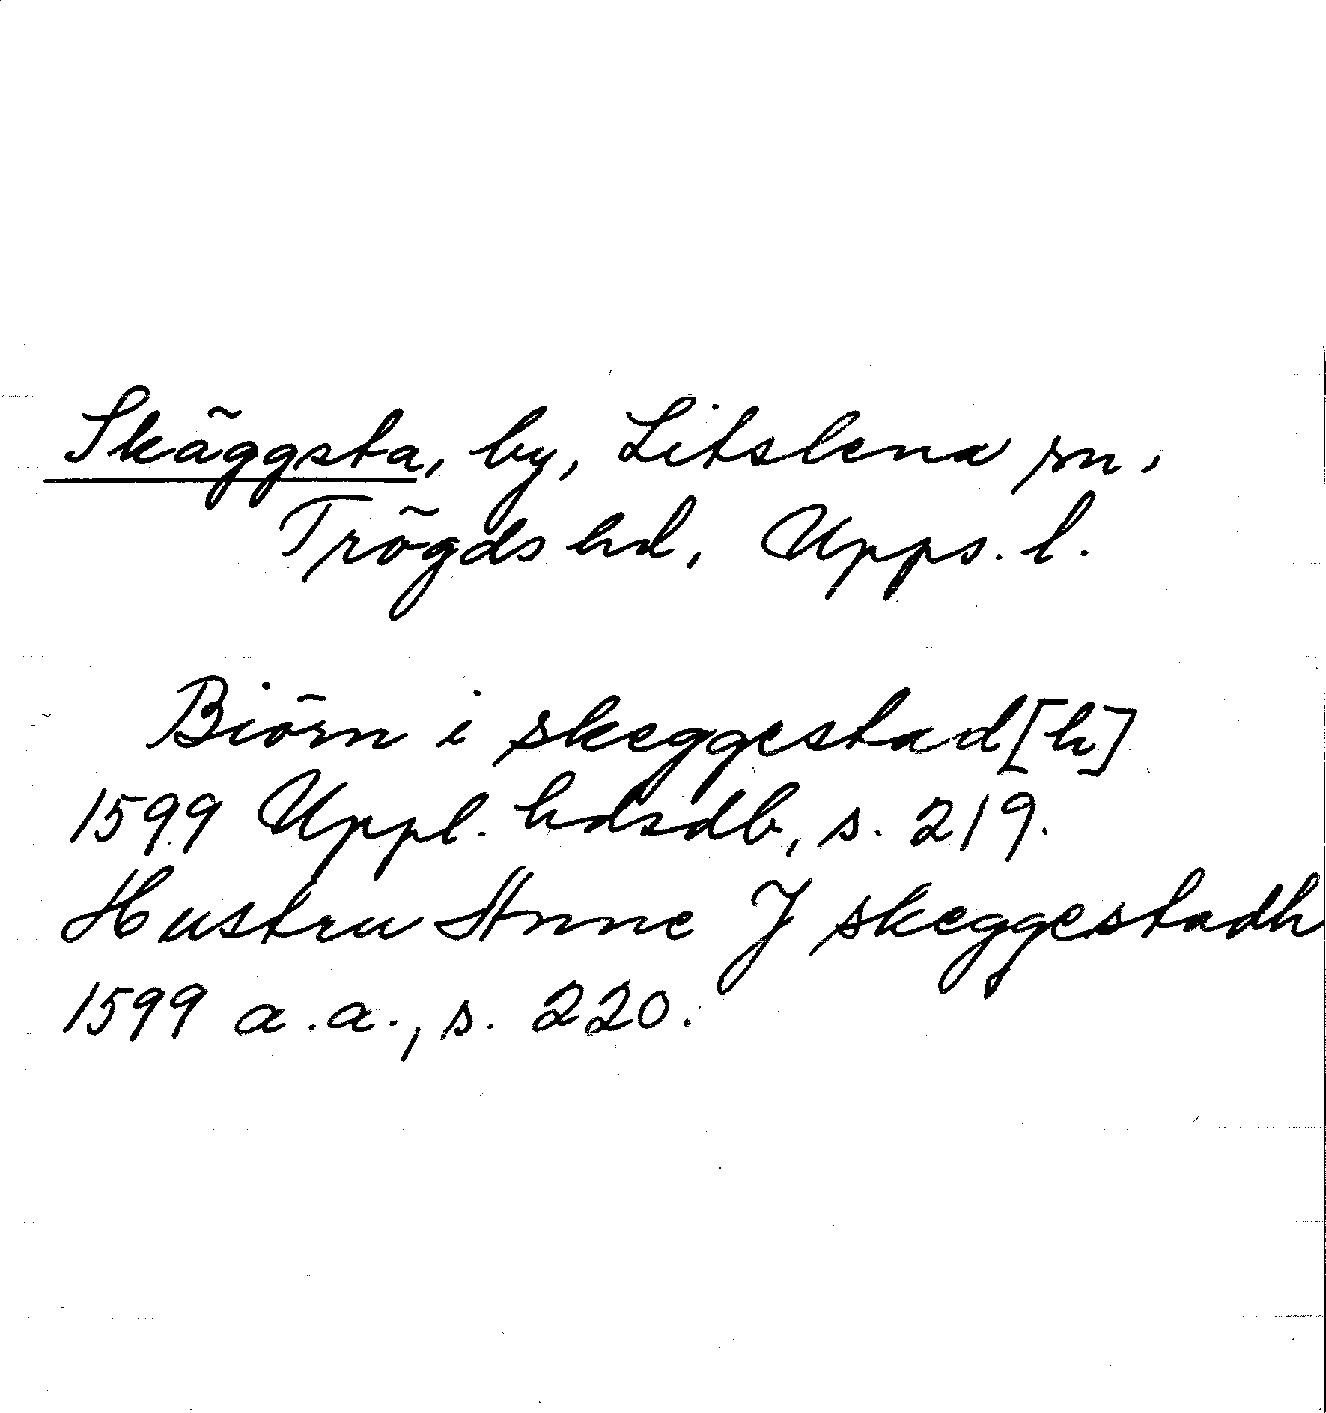 Skäggsta, by, Litslena sn,
Trögds hd, Upps. l.
Biörn i skeggestad[h]
1599 Uppl. hdsdb, s. 219.
Hustru Anne J skeggestadh
1599 a.a., s. 220.